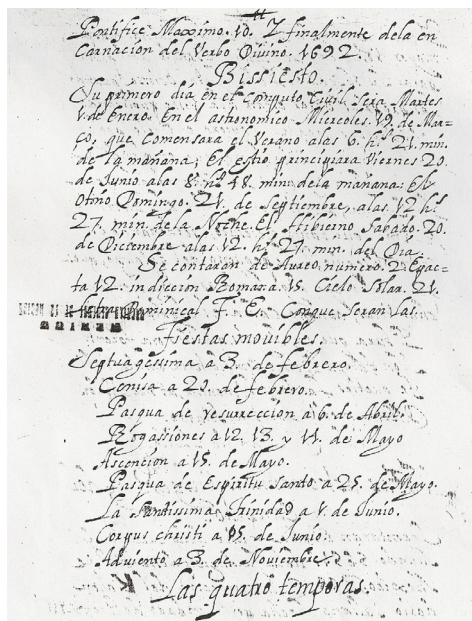 Pontifice Maximo. 10. Y finalmente dela en
Carnacion del Verbo Divino. 1692.
Bissiesto.
Su primero dia en el Computo Civil sera Martes
1. de Enero. En el astronomico Miercoles 19. de Mar=
ço, que Comensara el Verano alas 6. hs. 21. min.
de la mañana; El estio principiara Viernes 20.
de Junio alas 8. hs. 48. min. dela mañana: El
Otoño Domingo. 21. de Septiembre, alas 12. hs.
27. min. dela Noche. El Hibierno Sabado. 20.
de Diciembre alas 12. hs. 27. min. del Dia.
Se contaran de Aureo numero. 2. Epac=
ta 12. indiccion Romana. 15. Ciclo Solar. 21.
letra Dominical F. E. Conque seran las
Fiestas mouibles.
Septuagessima a 3. de febrero.
Cenisa a 20. de febrero.
Pasqua de resurreccion a 6. de Abril.
Rogassiones a 12. 13. y 14. de Mayo
Ascencion a 15. de Mayo.
Pasqua de Espiritu Santo a 25. de Mayo.
La Santissima Trinidad a 1. de Junio.
Corpus christi a 05. de Junio.
Adviento a 3. de Noviembre.
Las quatro temporas